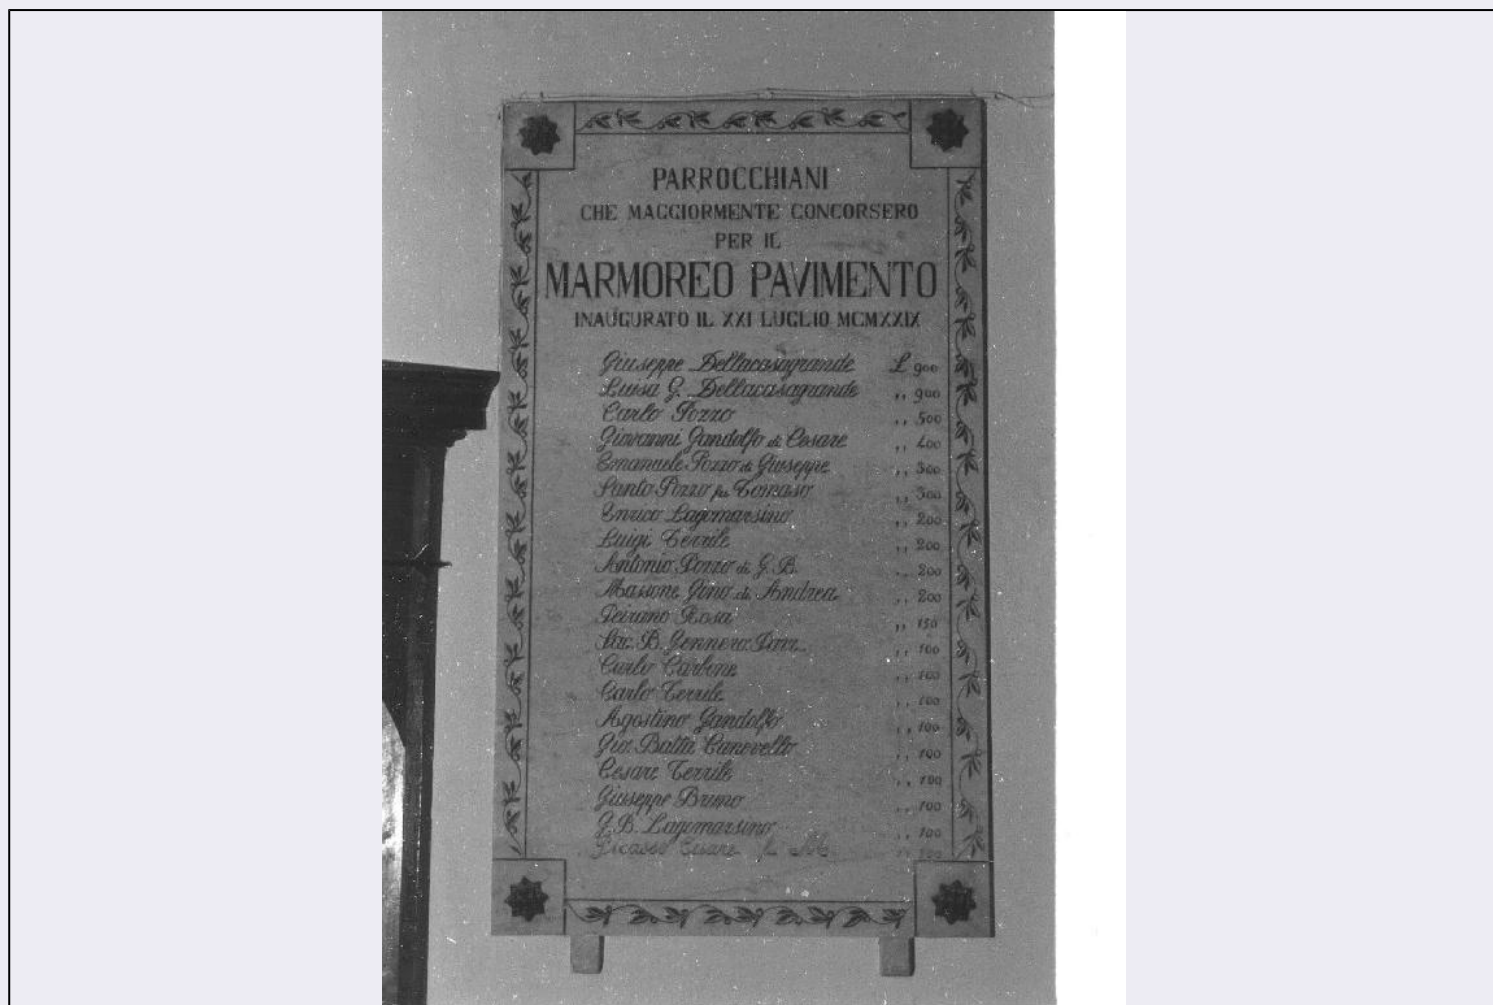 PARROCCHIANI
CHE MAGGIORMENTE CONCORSERO
PER IL
MARMOREO PAVIMENTO
INAUGURATO IL XXI LUGLIO MCMXXIX
Giuseppe Dellacasagrande £ 900
Luisa G. Dellacasagrande ,, 900
Carlo Pozzo ,, 500
Giovanni Gandolfo di Cesare ,, 400
Emanuele Pozzo di Giuseppe ,, 300
Santo Pozzo fu Tomaso ,, 300
Enrico Lagomarsino ,, 200
Luigi Terrile ,, 200
Antonio Pozzo di G. B. ,, 200
Massone Gino di Andrea ,, 200
Peirano Rosa ,, 150
B. ,, 100
Carlo Carbone ,, 100
Carlo Terrile ,, 100
Agostino Gandolfo ,, 100
Gio. Batta Canevello ,, 100
Cesare Terrile ,, 100
Giuseppe Bruno ,, 100
G. B. Lagomarsino ,, 100
Picasso Cesare ,, 100